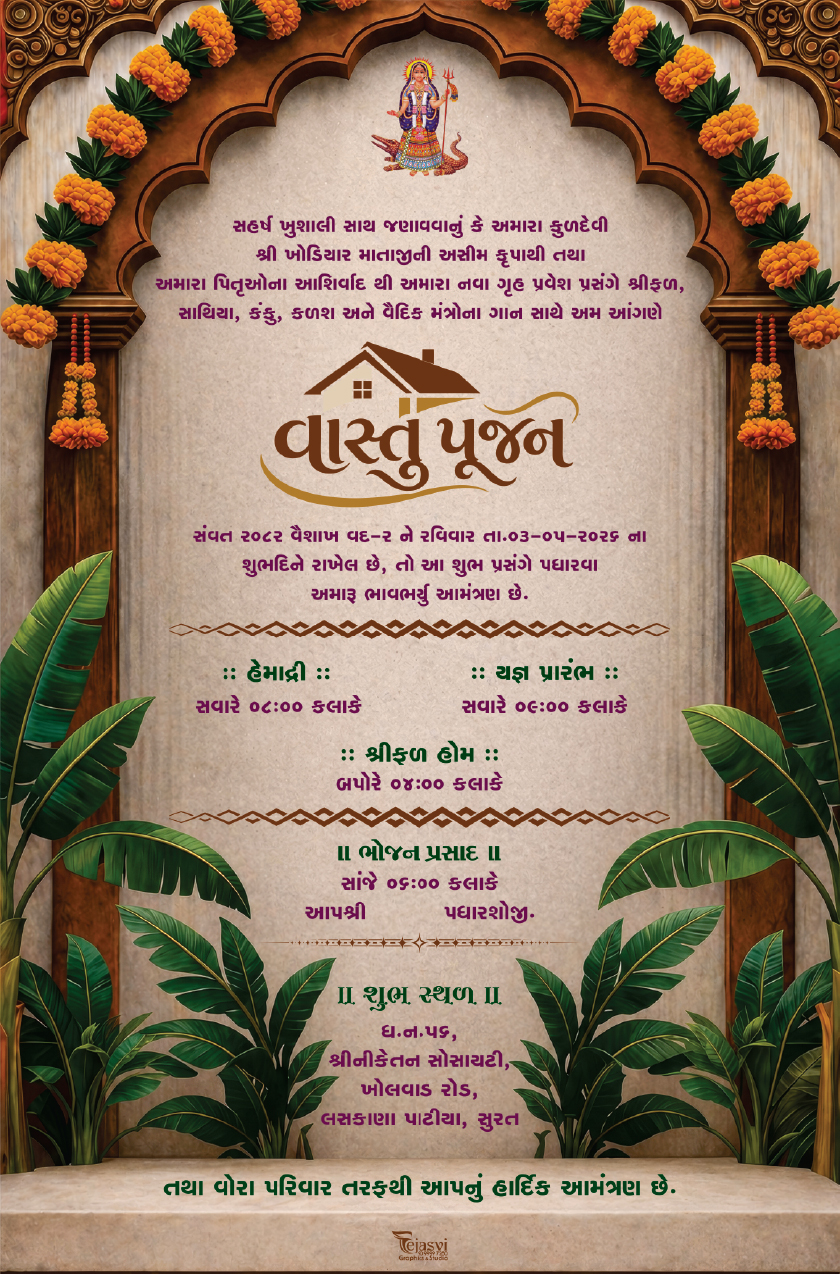 સહર્ષ ખુશાલી સાથ જણાવવાનું કે અમારા કુળદેવી
શ્રી ખોડિયાર માતાજીની અસીમ કૃપાથી તથા
અમારા પિતૃઓના આશિર્વાદ થી અમારા નવા ગૃહ પ્રવેશ પ્રસંગે શ્રીફળ,
સાથિયા, કંકુ, કળશ અને વૈદિક મંત્રોના ગાન સાથે અમ આંગણે
વાસ્તુ પૂજન
સંવત ૨૦૮૨ વૈશાખ વદ-૨ ને રવિવાર તા.૦૩-૦૫-૨૦૨૬ ના
શુભદિને રાખેલ છે, તો આ શુભ પ્રસંગે પધારવા
અમારૂ ભાવભર્યુ આમંત્રણ છે.
:: હેમાદ્રી :: :: યજ્ઞ પ્રારંભ ::
સવારે ૦૮:૦૦ કલાકે સવારે ૦૯:૦૦ કલાકે
:: શ્રીફળ હોમ ::
બપોરે ૦૪:૦૦ કલાકે
॥ ભોજન પ્રસાદ ॥
સાંજે ૦૬:૦૦ કલાકે
આપશ્રી પધારશોજી.
॥ શુભ સ્થળ ॥
ઘ.ન.૫૬,
શ્રીનીકેતન સોસાયટી,
ખોલવાડ રોડ,
લસકાણા પાટીયા, સુરત
તથા વોરા પરિવાર તરફથી આપનું હાર્દિક આમંત્રણ છે.
Tejasvi
Graphics & Studio